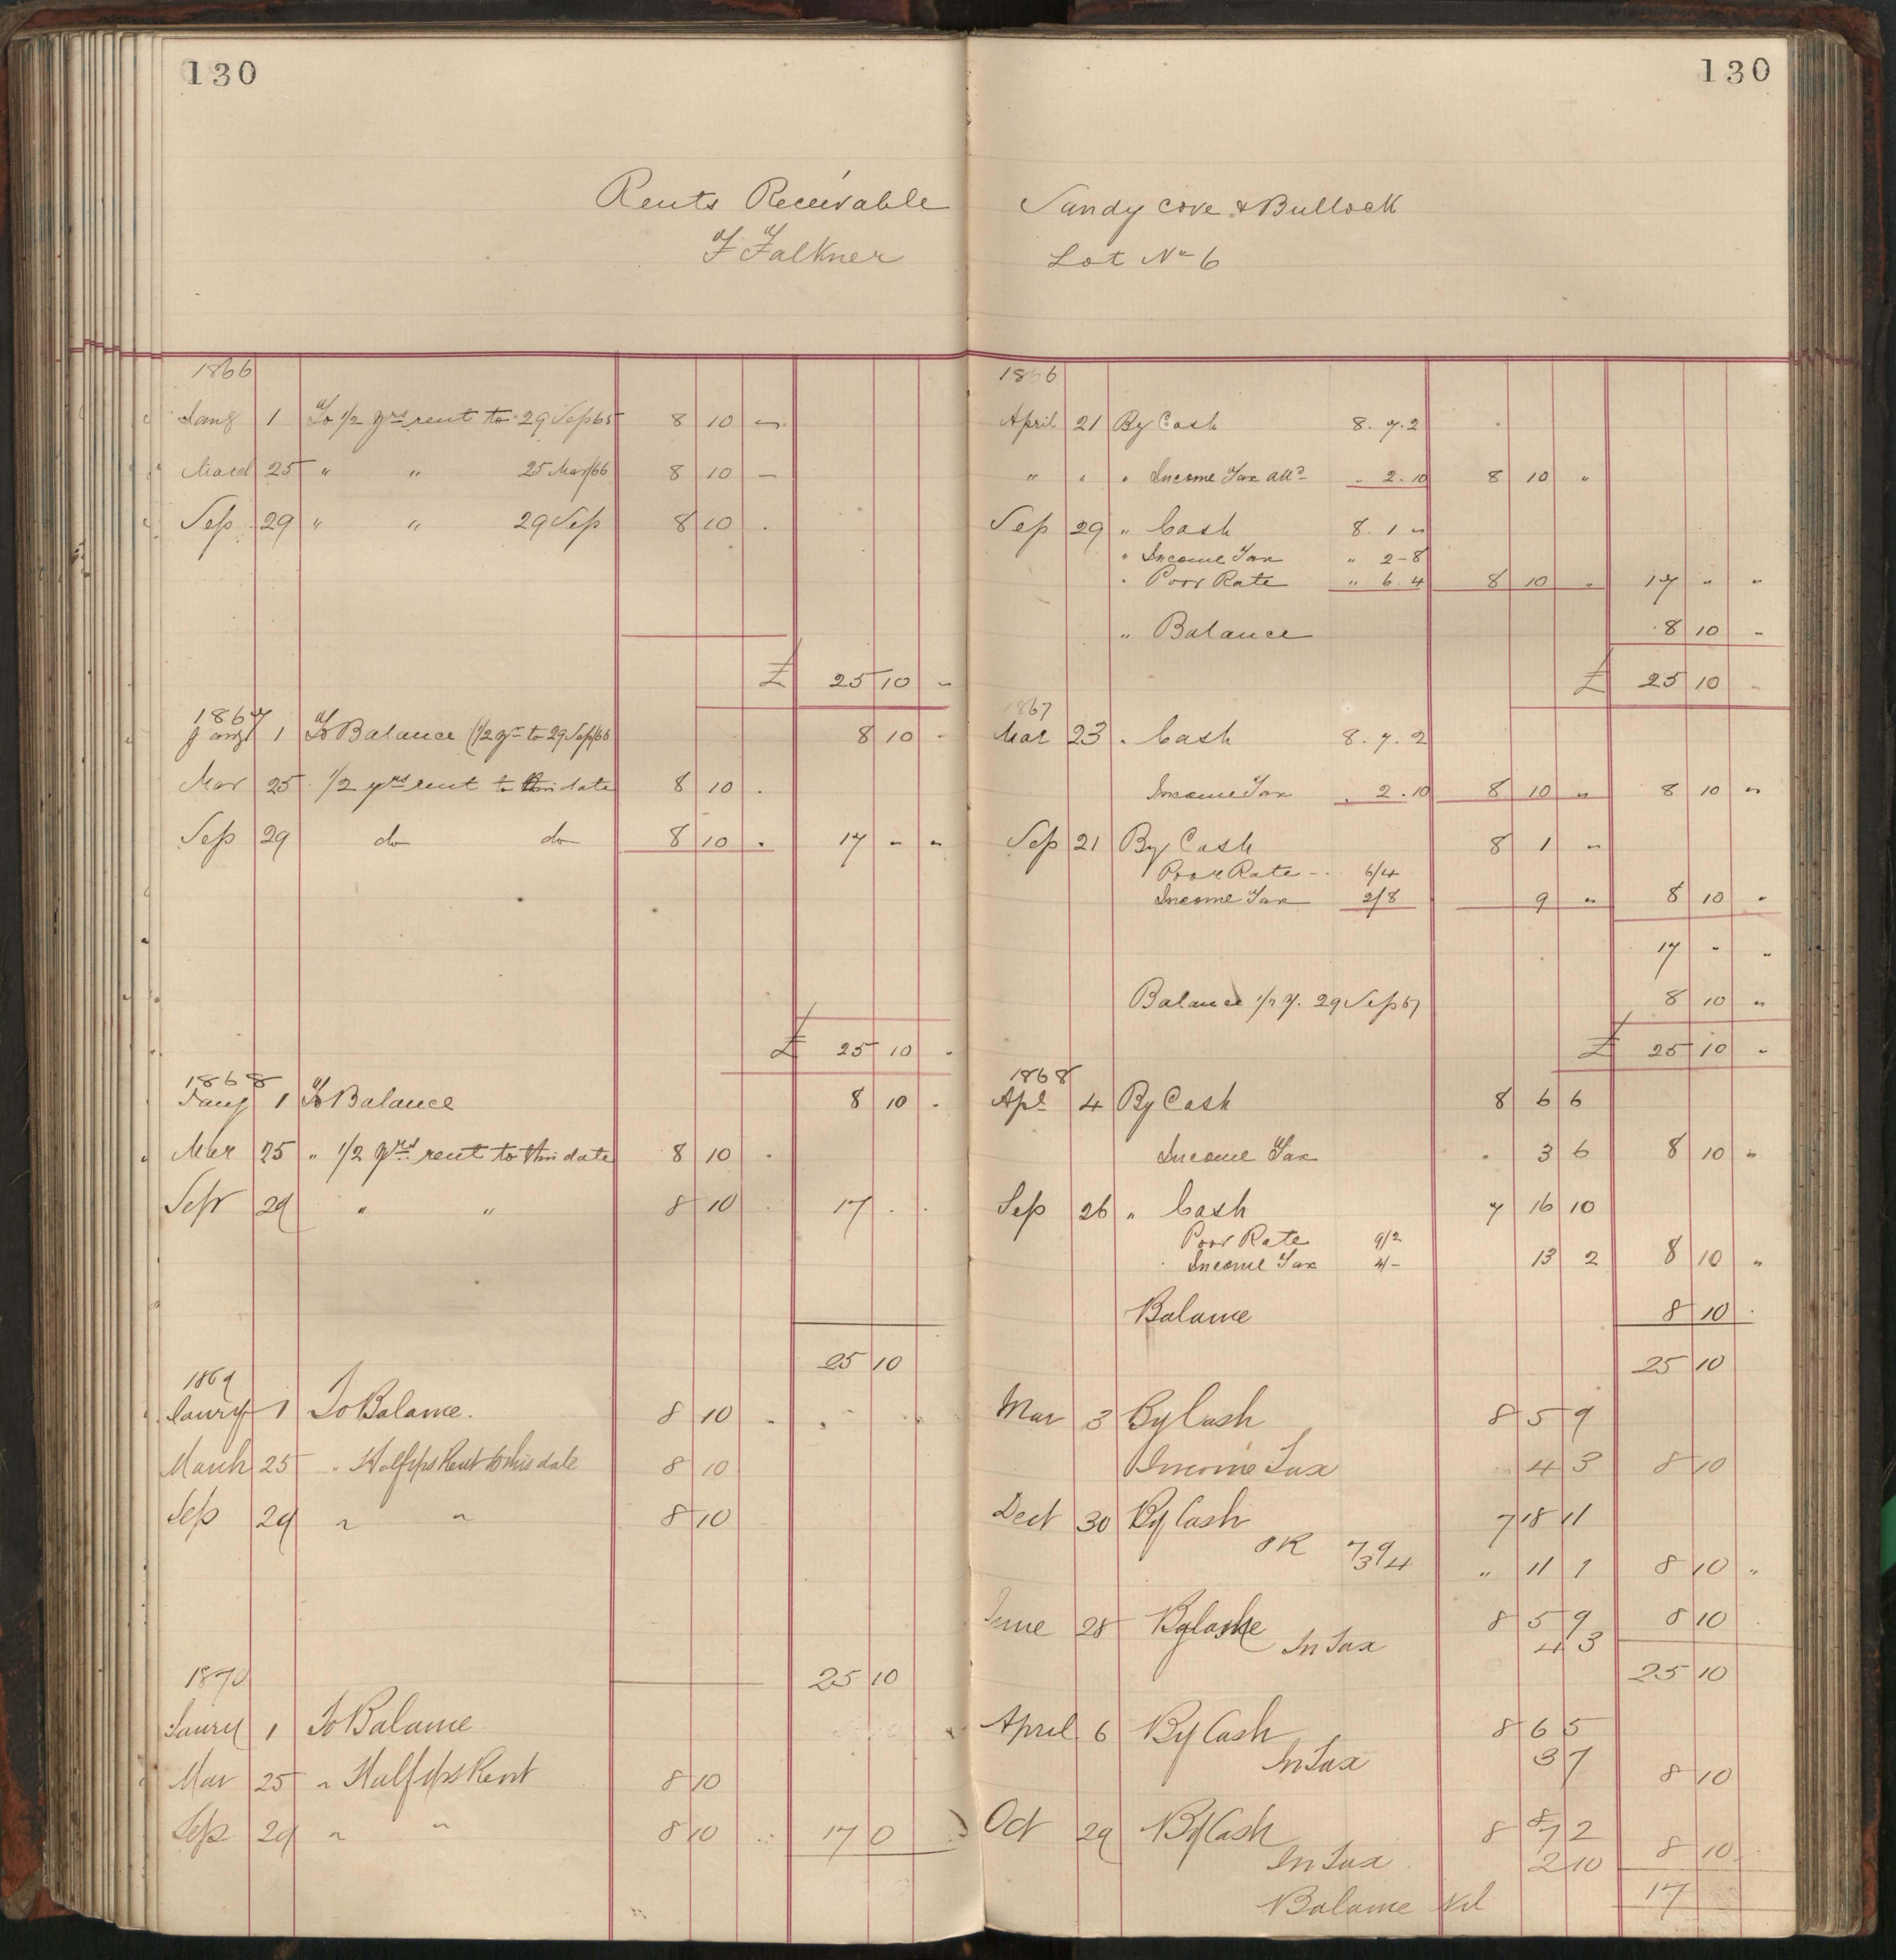 130
Rents Receivable
F Falkner
1866
Jany 1 To 1/2 yrs rent to 29 Sep 65 8 10 -
March 25 " " 25 Mar/66 8 10 -
Sep 29 " " 29 Sep 8 10 .
£ 25 10 "
1867
Jany 1 To Balance (1/2 yr to 29 Sep/66 8 10 "
Mar 25 . 1/2 yrs rent to this date 8 10 .
Sep 29 do do 8 10 . 17 " "
£ 25 10 .
1868
Jany 1 To Balance 8 10 .
Mar 25 " 1/2 yrs rent to this date 8 10 .
Sepr 29 " " 8 10 . 17 . .
25 10
1869
Jaury 1 To Balance. 8 10 .
March 25 " Half yrs Rent to this date 8 10
Sep 29 " " 8 10
25 10
1870
Jaury 1 To Balance
Mar 25 " Half yrs Rent 8 10
Sep 29 " " 8 10 17 0
130
Sandy cove & Bullock
Lot No 6
1866
April 21 By Cash 8. 7. 2
" " " Income Tax alld . 2. 10 8 10 "
Sep 29 " Cash 8. 1 "
" Income Tax " 2-8
" Poor Rate " 6. 4 8 10 " 17 " "
" Balance 8 10 -
£ 25 10 "
1867
Mar 23 . Cash 8. 7. 2
Income Tax . 2. 10 8 10 " 8 10 "
Sep 21 By Cash 8 1 "
Poor Rate -- 6/4
Income Tax 2/8 9 " 8 10 "
17 " "
Balance 1/2 y. 29 Sep 67 8 10 "
£ 25 10 "
1868
Apl 4 By Cash 8 6 6
Income Tax . 3 6 8 10 "
Sep 26 " Cash 7 16 10
Poor Rate 9/2
Income Tax 4/- 13 2 8 10 "
Balance 8 10 .
25 10
Mar 3 By Cash 8 5 9
Income Tax 4 3 8 10
Dect 30 By Cash 7 18 11
7/9
3/4 " 11 1 8 10 "
June 28 By Cash 8 5 9 8 10
In Tax 4 3
25 10
April 6 By Cash 8 6 5
In Tax 3 7 8 10
Oct 29 By Cash 8 7 2
In Tax 2 10 8 10
Balance Nil 17